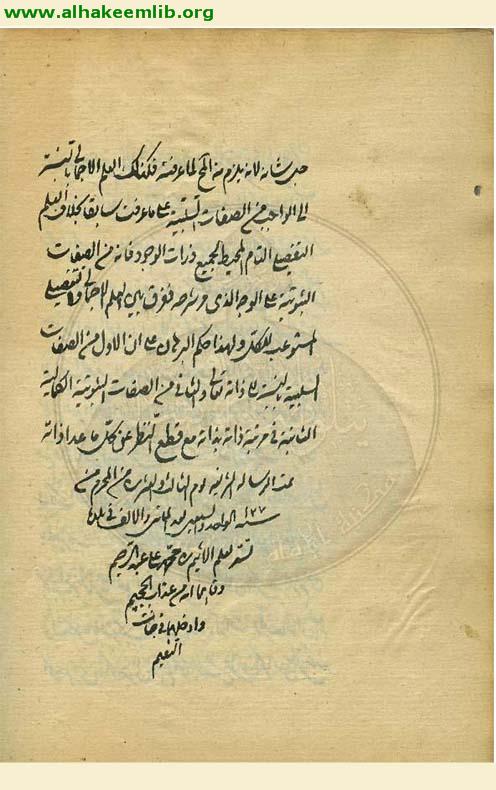 www.alhakeemlib.org
جل شانه لانه يلزم منه المح لما عرفته فكذلك العلم الاجمالي بالنسبة
الى الواجب من الصفات السلبية على ما عرفت سابقا بخلاف العلم
التفصيلي التام المحيط بجميع ذرات الوجود فانه من الصفات
الثبوتية على الوجه الذي مر شرحه ففرق بين العلم الاجمالي والتفصيلي
المستوعب للكل ولهذا حكم البرهان على ان الاول من الصفات
السلبية بالنسبة الى ذاته تعالى والثاني من الصفات الثبوتية الكمالية
الثابتة في مرتبة ذاته بذاته مع قطع النظر عن كل ما عدا ذاته
تمت الرسالة الشريفة يوم الثالث والعشرين من المحرم من
سنة ١٢٧١ الواحد والسبعين بعد المائتين والالف في
بقلم الاثيم عبد الرحيم
وقاهما الله من عذاب الجحيم
وادخلهما في جنات
النعيم